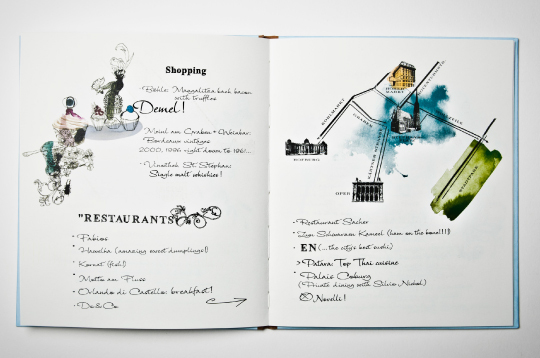 Shopping
Böhle: Mangalitza back bacon
with truffles
Demel!
Meinl am Graben + Weinbar:
Bordeaux vintages
2000, 1996 right down to 1961...
Vinothek St. Stephan:
Single malt whiskies!
"RESTAURANTS
Fabios
Hawelka (amazing sweet dumplings!)
Kornat (fish!)
Motto am Fluss
Orlando di Castello: breakfast!
Do & Co
HOHER
MARKT
ROTENTURMSTR.
KOHLMARKT
GRABEN
WOLLZEILE
KÄRNTNER STRASSE
HOFBURG
OPER
STADTPARK
Restaurant Sacher
Zum Schwarzen Kameel (ham on the bone!!!)
EN (...the city's best sushi)
> Patara: Top Thai cuisine
Palais Coburg
(Private dining with Silvio Nickol)
Novelli!